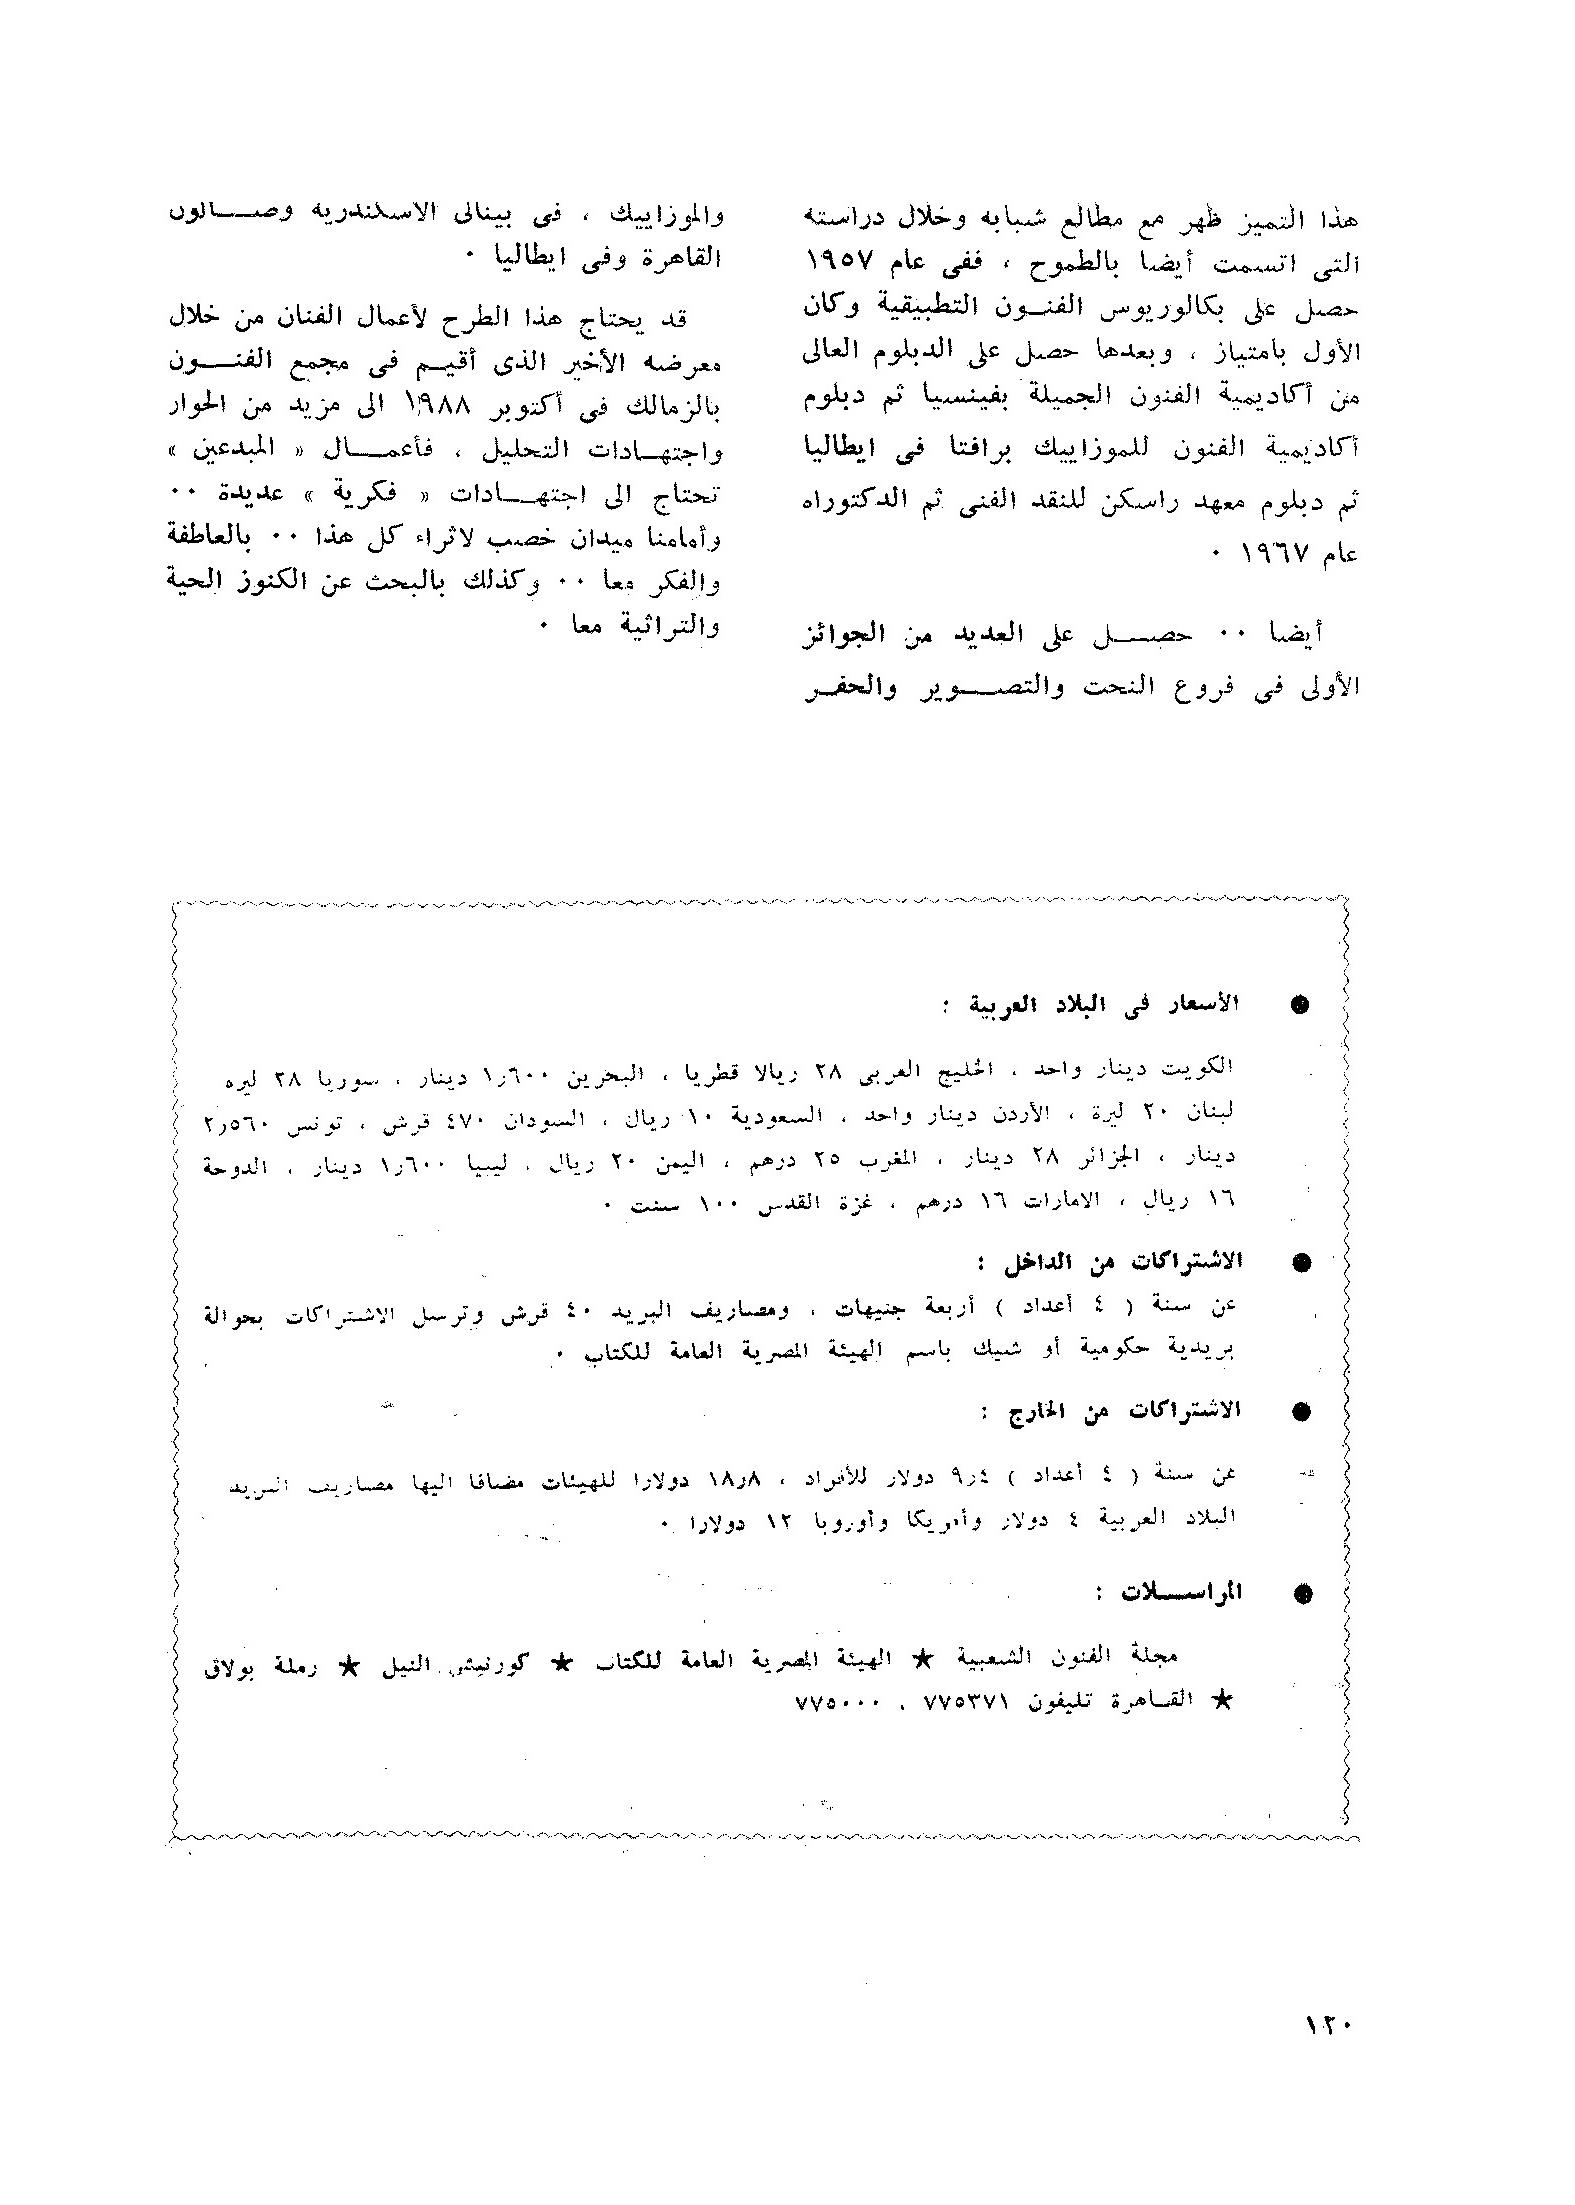 هذا التميز ظهر مع مطالع شبابه وخلال دراسته
التى اتسمت أيضا بالطموح ، ففى عام ١٩٥٧
حصل على بكالوريوس الفنــون التطبيقية وكان
الأول بامتياز ، وبعدها حصل على الدبلوم العالى
من أكاديمية الفنون الجميلة بفينسيا ثم دبلوم
أكاديمية الفنون للموزاييك برافتا فى ايطاليا
ثم دبلوم معهد راسكن للنقد الفنى ثم الدكتوراه
عام ١٩٦٧ ٠
أيضا ٠٠ حصــل على العديد من الجوائز
الأولى فى فروع النحت والتصــوير والحفـر
والموزاييك ، فى بينالى الاسكندرية وصــالون
القاهرة وفى ايطاليا ٠
قد يحتاج هذا الطرح لأعمال الفنان من خلال
معرضه الأخير الذى أقيـم فى مجمع الفنــون
بالزمالك فى أكتوبر ١٩٨٨ الى مزيد من الحوار
واجتهـادات التحليل ، فأعمــال « المبدعين »
تحتاج الى اجتهــادات « فكرية » عديدة ٠٠
وأمامنا ميدان خصب لاثراء كل هذا ٠٠ بالعاطفة
والفكر معا ٠٠ وكذلك بالبحث عن الكنوز الحية
والتراثية معا ٠
● الأسعار فى البلاد العربية :
الكويت دينار واحد ، الخليج العربى ٢٨ ريالا قطريا ، البحرين ١٫٦٠٠ دينار ، سوريا ٢٨ ليره
لبنان ٢٠ ليرة ، الأردن دينار واحد ، السعودية ١٠ ريال ، السودان ٤٧٠ قرش ، تونس ٢٫٥٦٠
دينار ، الجزائر ٢٨ دينار ، المغرب ٢٥ درهم ، اليمن ٢٠ ريال ، ليبيا ١٫٦٠٠ دينار ، الدوحة
١٦ ريال ، الامارات ١٦ درهم ، غزة القدس ١٠٠ سنت ٠
● الاشتراكات من الداخل :
عن سنة ( ٤ أعداد ) أربعة جنيهات ، ومصاريف البريد ٤٠ قرش وترسل الاشتراكات بحوالة
بريدية حكومية أو شيك باسم الهيئة المصرية العامة للكتاب ٠
● الاشتراكات من الخارج :
عن سنة ( ٤ أعداد ) ٩٫٤ دولار للأفراد ، ١٨٫٨ دولارا للهيئات مضافا اليها مصاريف البريد
البلاد العربية ٤ دولار وأمريكا وأوروبا ١٢ دولارا ٠
● المراســلات :
مجلة الفنون الشعبية ★ الهيئة المصرية العامة للكتاب ★ كورنيش النيل ★ رملة بولاق
★ القـاهرة تليفون ٧٧٥٣٧١ ، ٧٧٥٠٠٠
١٢٠